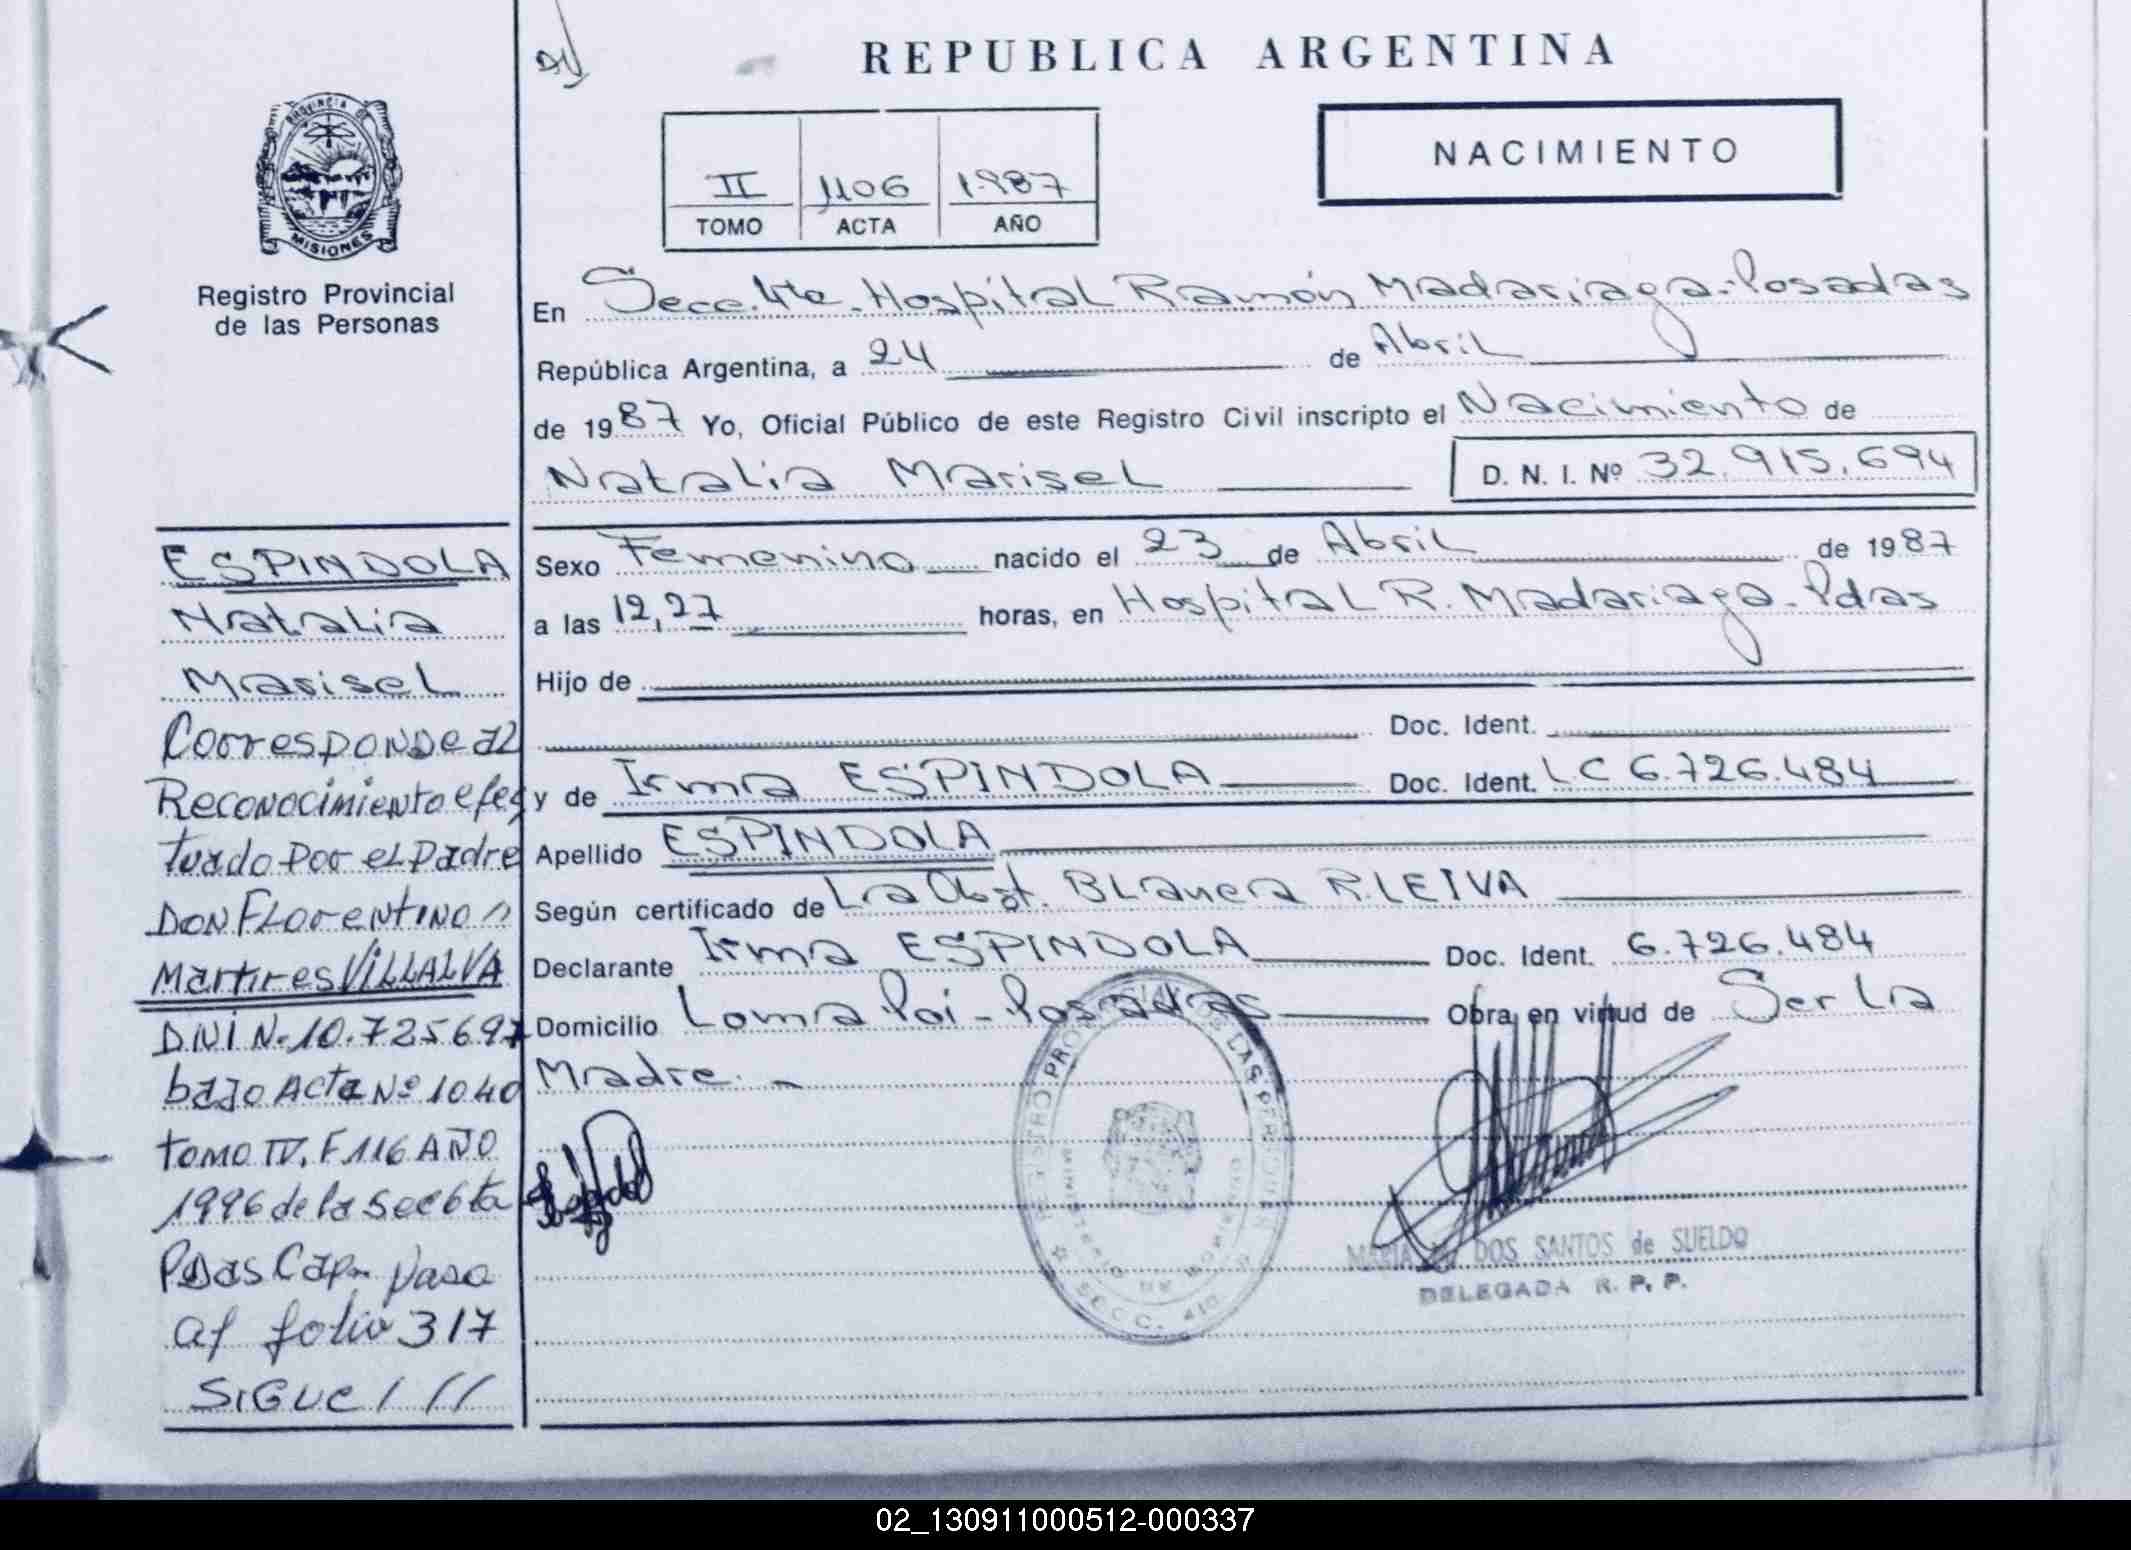 REPUBLICA ARGENTINA
NACIMIENTO
II 1106 1987
TOMO ACTA AÑO
PROVINCIA DE
MISIONES
Registro Provincial
de las Personas
En Secc. 4ta. Hospital Ramón Madariaga-Posadas
República Argentina, a 24 de Abril
de 1987 Yo, Oficial Público de este Registro Civil inscripto el Nacimiento de
Natalia Marisel
D. N. I. Nº 32.915.694
Sexo Femenino nacido el 23 de Abril de 1987
a las 12,27 horas, en Hospital R. Madariaga-Pdas
Hijo de
Doc. Ident.
y de Irma ESPINDOLA Doc. Ident. LC 6.726.484
Apellido ESPINDOLA
Según certificado de La Obst. Blanca R. LEIVA
Declarante Irma ESPINDOLA Doc. Ident. 6.726.484
Domicilio Loma Poi-Posadas Obra en virtud de Ser La
Madre.-
MARIA DOS SANTOS de SUELDO
DELEGADA R. P. P.
ESPINDOLA
Natalia
Marisel
Corresponde al
Reconocimiento efec
tuado por el padre
DON FLorentino
Martires VILLALVA
DNI N. 10.725697
bajo Acta Nº 1040
tomo IV. F 116 AÑO
1996 de la Sec 6ta
PDas Cap. Pasa
al folio 317
SIGUE ///
02_130911000512-000337